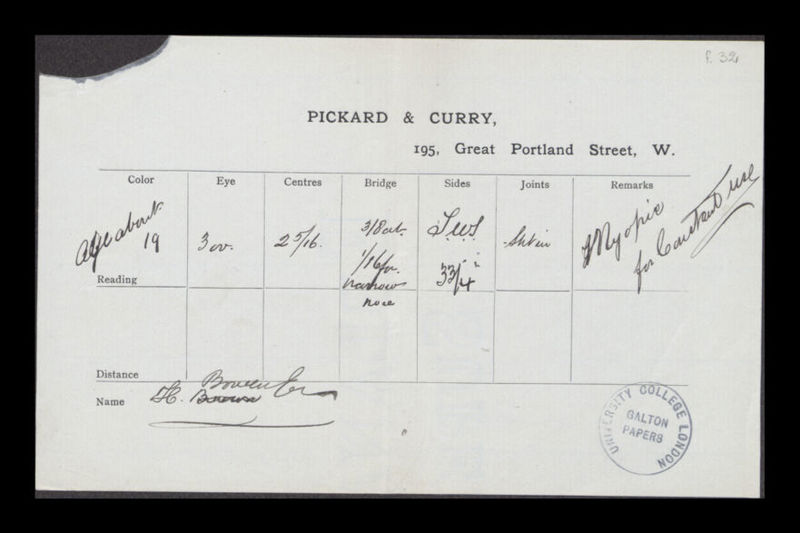 f. 32
PICKARD & CURRY,
195, Great Portland Street, W.
Color Eye Centres Bridge Sides Joints Remarks
Age about 19 3 ov. 2 5/16. 3/8 at. 1/16 for narrow nose 3 3/4 Myopic for Constant use
Reading
Distance
Name H. Bowen
UNIVERSITY COLLEGE LONDON
GALTON PAPERS